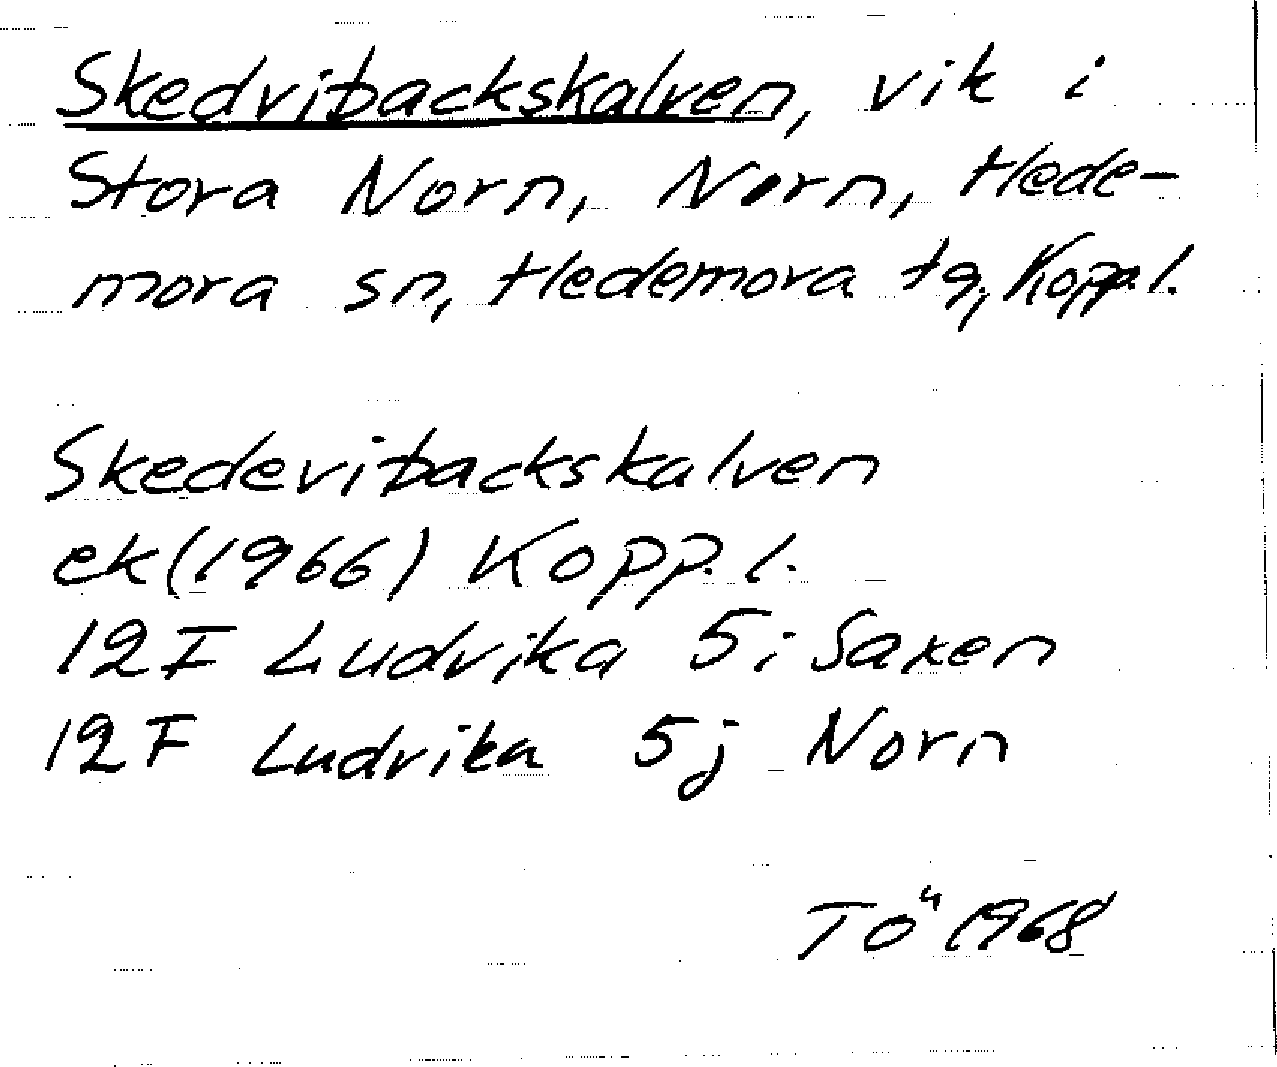 Skedvibackskalven, vik i
Stora Norn, Norn, Hede-
mora sn, Hedemora tg, Kopp.l.
Skedevibackskalven
ek (1966) Kopp. l.
12F Ludvika 5i Saxen
12F Ludvika 5j Norn
TÖ 1968